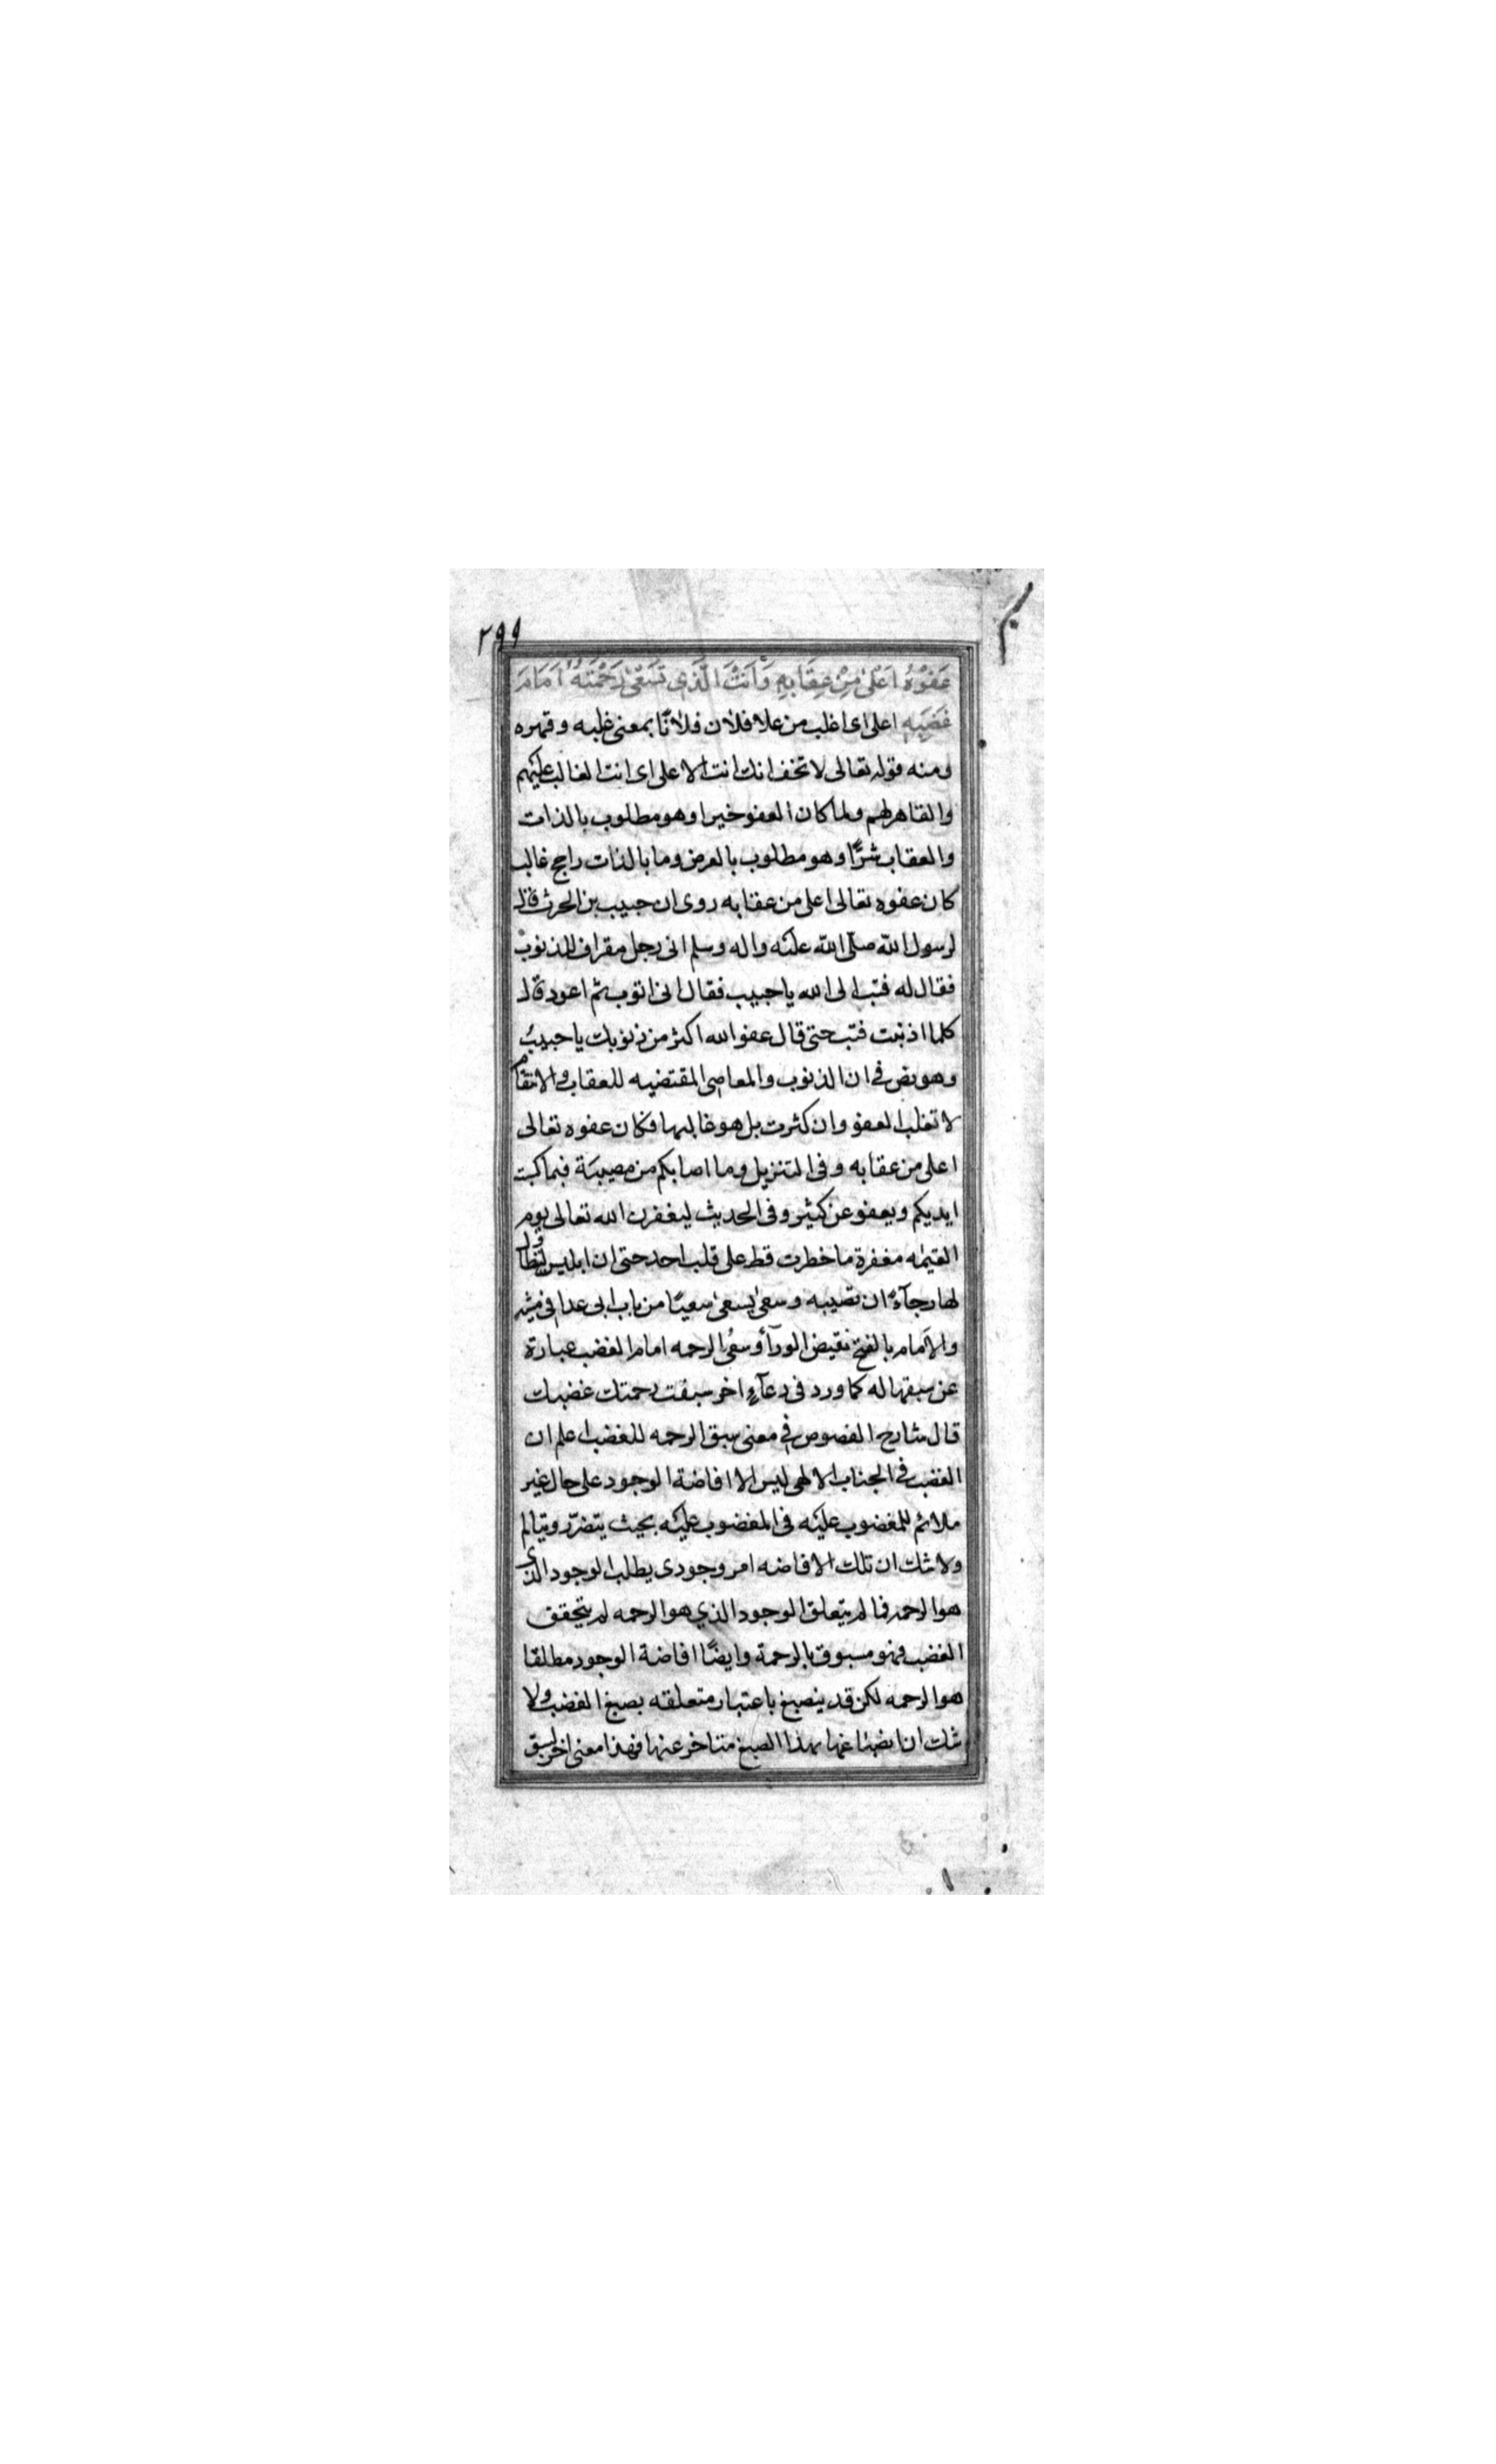 ٢٩٩
عَفْوُهُ اَعْلىٰ مِنْ عِقَابِهِ وَاَنْتَ الَّذى تَسْعىٰ رَحْمَتُهُ اَمَامَ
غَضَبِهِ اعلى اى اغلب من علا فلان فلانًا بمعنى غلبه وقهره
ومنه قوله تعالى لا تخف انك انت الاعلى اى انت الغالب عليهم
والقاهر لهم ولما كان العفو خيرا وهو مطلوب بالذات
والعقاب شرًّا وهو مطلوب بالعرض وما بالذات راجح غالب
كان عفوه تعالى اعلى من عقابه روى ان حبيب بن الحرث قال
لرسول الله صلّى الله عليه واله وسلم انى رجل مقراف للذنوب
فقال له فتب الى الله يا حبيب فقال انى اتوب ثم اعود قال
كلما اذنبت فتب حتى قال عفو الله اكثر من ذنوبك يا حبيبُ
وهو نص فى ان الذنوب والمعاصى المقتضيه للعقاب والانتقام
لا تغلب العفو وان كثرت بل هو غالبها فكان عفوه تعالى
اعلى من عقابه وفى التنزيل وما اصابكم من مصيبة فبما كسبت
ايديكم ويعفو عن كثير وفى الحديث ليغفرن الله تعالى يوم
القيمٰه مغفرة ما خطرت قط على قلب احد حتى ان ابليس ليتطاول
لها رجآءً ان تصيبه وسعىٰ يسعىٰ سعيًا من باب ابى عدا فى مشيه
والاَمام بالفتح نقيض الورآء وسعىُ الرحمه امام الغضب عبارة
عن سبقها له كما ورد فى دعآءٍ اخر سبقت رحمتك غضبك
قال شارح الفصوص فى معنى سبق الرحمه للغضب اعلم ان
الغضب فى الجناب الالهى ليس الا افاضة الوجود على حال غير
ملائم للمغضوب عليه فى المغضوب عليه بحيث يتضرّر ويتالم
ولا شك ان تلك الافاضه امر وجودى يطلب الوجود الذى
هو الرحمه فما لم يتعلق الوجود الذي هو الرحمه لم يتحقق
الغضب فهو مسبوق بالرحمة وايضًا افاضة الوجود مطلقا
هو الرحمه لكن قد ينصبغ باعتبار متعلقه بصبغ الغضب ولا
شك ان انصباغها بهذا الصبغ متاخر عنها فهذا معنى اخر لسبق